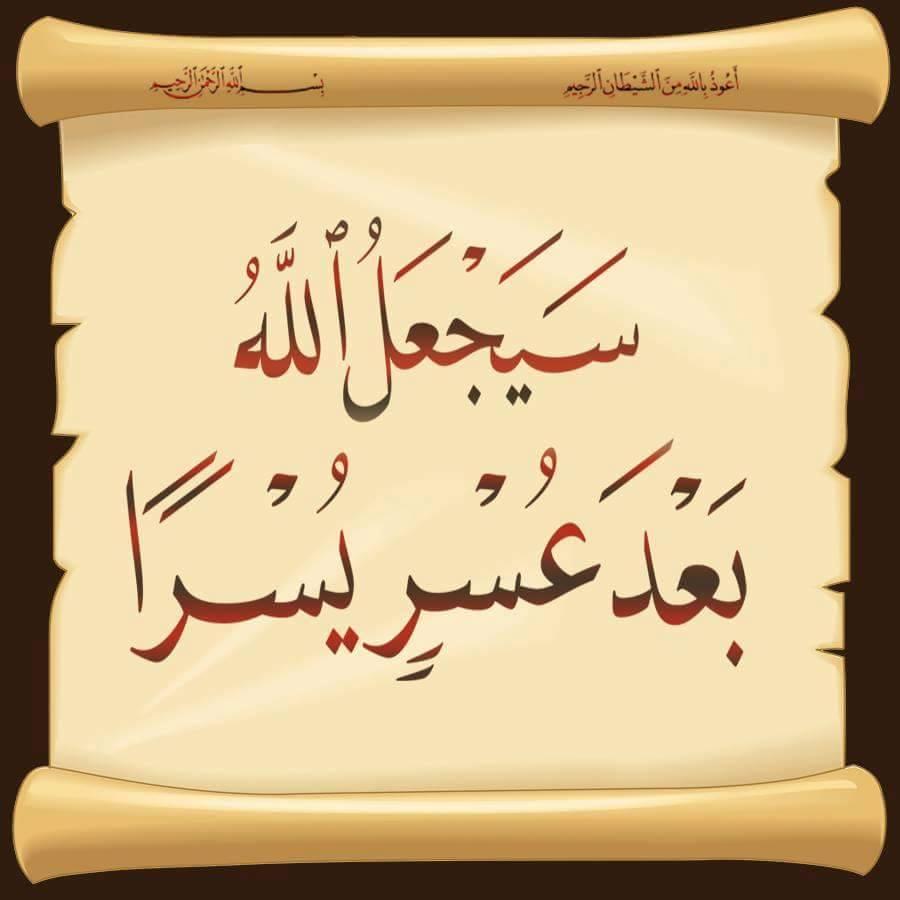 أَعُوذُ بِاللَّهِ مِنَ ٱلشَّيْطَانِ ٱلرَّجِيمِ
بِسْمِ ٱللَّهِ ٱلرَّحْمَٰنِ ٱلرَّحِيمِ
سَيَجْعَلُ ٱللَّهُ
بَعْدَ عُسْرٍ يُسْرًا